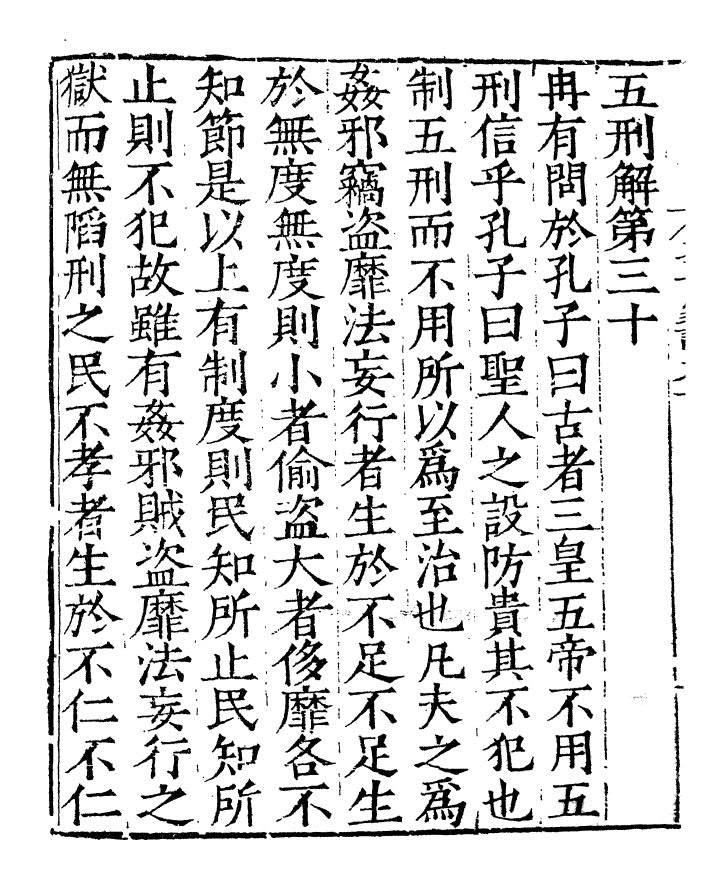 五刑解第三十
冉有問於孔子曰古者三皇五帝不用五
刑信乎孔子曰聖人之設防貴其不犯也
制五刑而不用所以爲至治也凡夫之爲
姦邪竊盜靡法妄行者生於不足不足生
於無度無度則小者偷盜大者侈靡各不
知節是以上有制度則民知所止民知所
止則不犯故雖有姦邪賊盜靡法妄行之
獄而無陷刑之民不孝者生於不仁不仁